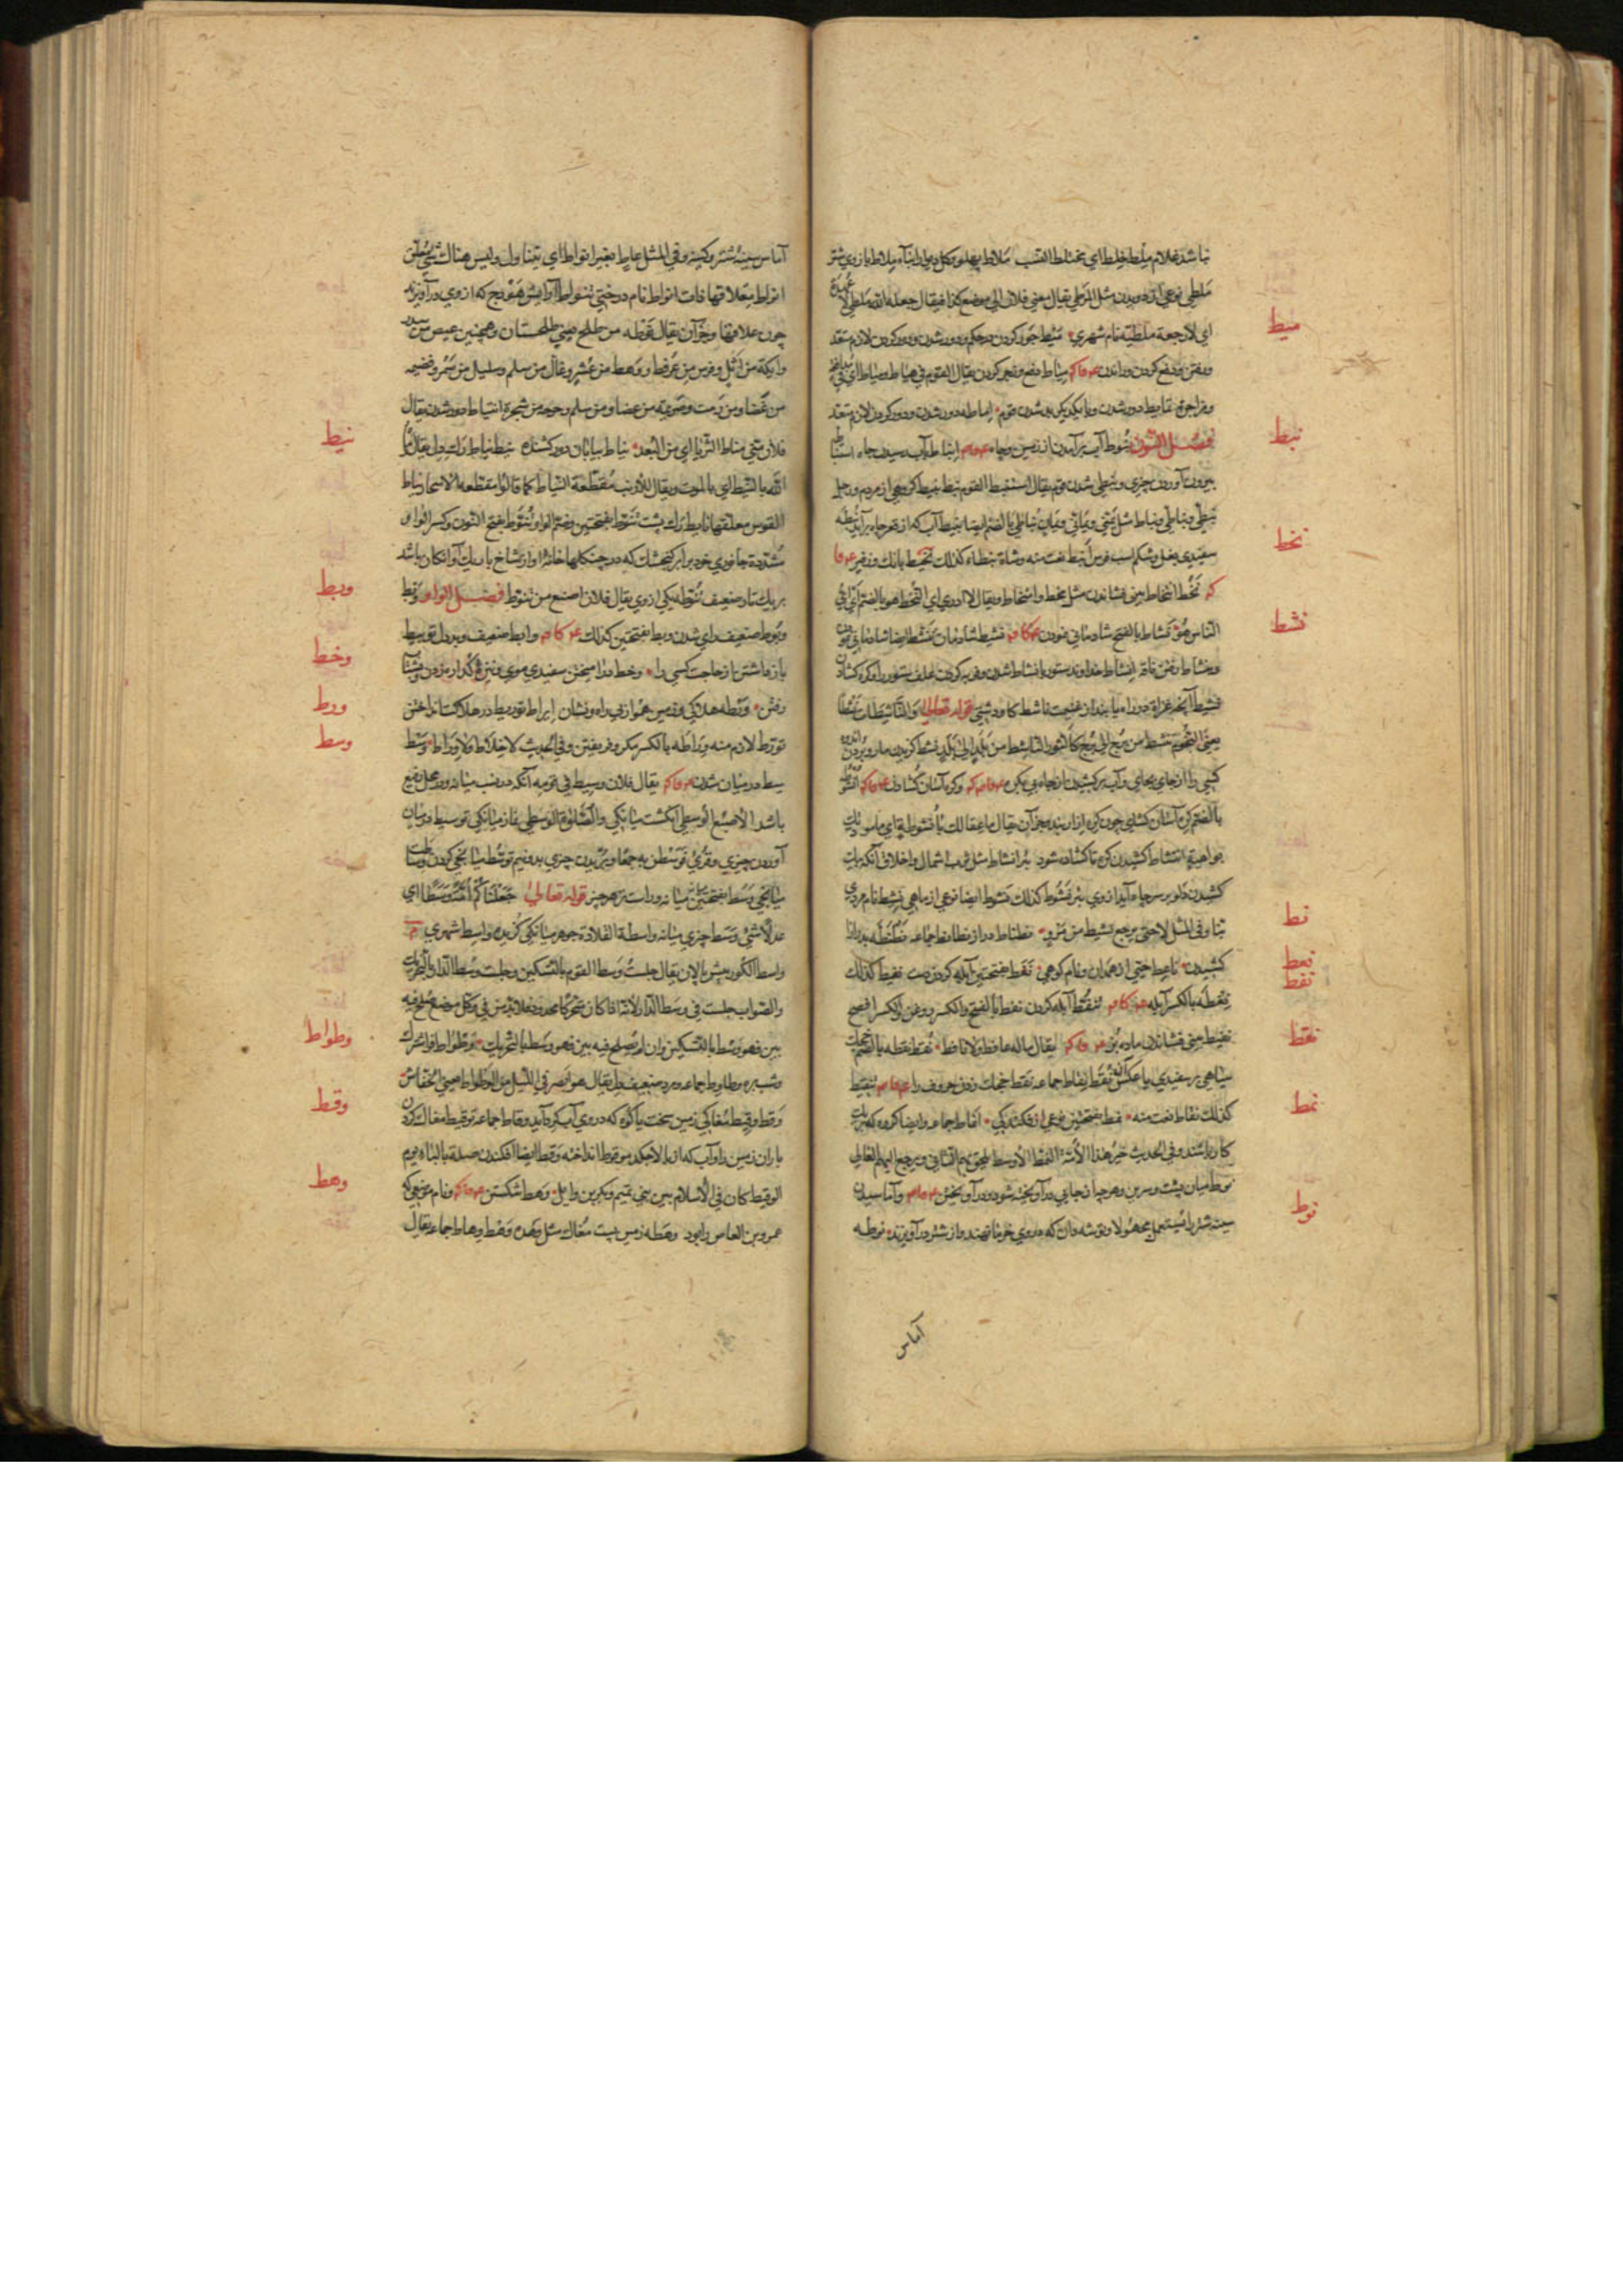 نباشد غلام ملط خلط ای مختلط النسب ملاط پهلو وکل دیوار ابنآء ملاط بازوی شتر
ملطی نوعی از دویدن مثل المرطی یقال مضی فلان الی موضع کذا فیقال جعله الله ملطی لا عهدة
ای لا رجعة ملطیه نام شهری میط جور کردن در حکم و دور شدن و دور کردن لازم متعد
میط
ورفتن ودفع کردن وراندن میاط دفع وزجر کردن یقال القوم فی هیاط ومیاط ای
ومزاحوة تمایط دور شدن وبا یکدیگر بد شدن قوم اماطه دور شدن ودور کردن لازم متعد
فصل النون نبوط آب برآمدن از زمین وچاه انباط بآب رسیدن چاه استنباط
نبط
بیرون آوردن چیزی ونبطی شدن قوم یقال استنبط القوم نبط نبیط گروهی از مردم ورجل
نبطی ونباطی ونباط مثل یمنی ویمانی ویمان نباطی بالضم ایضا نبط آب که از قعر چاه برآید نبطه
سفیدی بغل وشکم اسب فرس انبط نعت منه وشاة نبطاء کذلک نحیط بانک وزفیر
نحط
نخط انتخاط بینی فشاندن مثل مخط وامتخاط ویقال لا ادری ای النخط هو بالضم ای ای
الناس هو نشاط بالفتح شادمانی نمودن نشیط شادمان تنشط ایضا شادمانی نمودن
نشط
ونشاط رفتن ناقه انشاط خداوند ستور با نشاط شدن وفربه کردن علف ستور را وگره گشادن
نشیط آنچه غزاة در راه یابند از غنیمت ناشط گاو دشتی قوله تعالی والناشطات نشطا
یعنی النجوم تنشط من برج الی برج کالثور الناشط من بلد الی بلد نشط گزیدن مار وبردن اندوه
کسی را از جای بجای وآب برکشیدن از چاه بی بکره وگره آسان گشادن انشوطة
بالضم گره آسان گشای چون گره ازار بند وجز آن یقال ما عقالک بانشوطة ای ما مودتک
بواهیة انتشاط کشیدن گره تا گشاده شود بئر انشاط مثل ثوب اشمال واخلاق آنکه بیک
کشیدن دلو بر سر چاه آید از وی بئر نشوط کذلک نشوط ایضا نوعی از ماهی نشیط نام مردی
بنا وفی المثل لا حتی یرجع نشیط من مرو نطناط دراز نطانط جماعه نطنطه دراز
نط
کشیدن ناعط حیی از همدان ونام کوهی نفط بفتحتین آبله کردن دست نفیط کذلک
نعط
نفط
نفطه بالکسر آبله تنفط آبله کردن نفط بالفتح والکسر روغن والکسر افصح
نفیط بینی فشاندن ماده بز یقال ماله عافط ولا نافط نقط نقطه بالضم خجک
نقط
سیاهی بر سفیدی یا عکس آن نقط نقاط جماعه نقط خجک زدن حروف را تنقیط
کذلک نقاط نعت منه نمط بفتحتین نوعی از فکندگی انماط جماعه وایضا گروه که بیک
نمط
کار باشند وفی الحدیث خیر هذه الامة النمط الاوسط یلحق بهم التالی ویرجع الیهم الغالی
نوط میان پشت وسرین وهرچه از جایی درآویخته شود ودرآویختن وآماسیدن
نوط
سینه شتر یا نیستعمل مجهولا وتوشه دان که در وی خرما نهند واز شتر درآویزند نوطه
آماس
آماس سینه شتر وکینه وفی المثل عاط بغیر انواط ای یتناول ولیس هناک شیء معلق
انواط معلاقها ذات انواط نام درختی تنواط آرایش هودج که از وی درآویزند
چون علاقها وجز آن یقال نوطه من طلح یعنی طلحستان وهمچنین عیص من سدر
وایکة من اثل وفرش من عرفط ووهط من عشر وغال من سلم وسلیل من سمر وقضیمه
من غضا ومن رمث وصریمه من غضا ومن سلم وحرجه من شجر انتیاط دور شدن یقال
فلان منی مناط الثریا ای من البعد نیاط بیابان دور کشنده نیط نیاط رک دل یقال رماه
نیط
الله بالنیط ای بالموت ویقال للارنب مقطعة النیاط کما قالوا مقطعة الاسحار نیاط
القوس معلقها نایط رک پشت تنوط بفتحتین وضم الواو وتنوط بفتح النون وکسر الواو
مشددة جانوری خرد برابر گنجشک که در جنگلها خانه او از شاخ باریک آویزان باشد
بر یک تار ضعیف تنوطه یکی از وی یقال فلان اصنع من تنوط فصل الواو وبط
وبط
وبوط ضعیف رای شدن وبط بفتحتین کذلک وابط ضعیف وبددل توبیط
بازداشتن از حاجت کسی را وخط درآمیختن سفیدی موی ونیزه گذار زدن وشتاب
وخط
رفتن ورطه هلاکی وزمین هموار بی راه ونشان ایراط توریط در هلاکت انداختن
ورط
تورط لازم منه وراطه بالکسر مکر وفریفتن وفی الحدیث لا خلاط ولا وراط وسط
وسط
سطه در میان شدن یقال فلان وسیط فی قومه آنکه در نسب میانه ودر محل رفیع
باشد الاصبع الوسطی انگشت میانگی والصلوة الوسطی نماز میانگی توسیط در میان
آوردن چیزی وقرئ فوسطن به جمعا وبریدن چیزی بدو نیم توسط میانجی کردن وساطت
میانجی وسط بفتحتین میانه وراستین هر چیز قوله تعالی جعلناکم امة وسطا ای
عدلا شیء وسط چیزی میانه واسطة القلادة جوهر میانگی گزیده واسط شهری
واسط الکور پیش پالان یقال جلست وسط القوم بالتسکین وجلست وسط الدار بالتحریک
والصواب جلست فی وسط الدار لانه اذا کان متحرکا محدود فلا بد من فی وکل موضع صلح فیه
بین فهو وسط بالتسکین وان لم یصلح فیه بین فهو وسط بالتحریک وطواط فراشترک
وطواط
وشب‌پره وطاویط جماعه ومرد ضعیف دل یقال هو ابصر فی اللیل من الوطواط یعنی الخفاش
وقط وقیط مغاکی زمین سخت یا کوه که در وی آب گرد آید وقاط جماعه توقیط مغاک کردن
وقط
باران زمین را وآب که از بالا چکد موقوط انداخته وقط ایضا افکندن صدمة بالبناء یوم
الوقیط کان فی الاسلام بین بنی تمیم وبکر بن وایل وهط شکستن ونام موضعی که
وهط
عمرو بن العاص را بود وهطه زمین پست مغاک مثل وهده وهط وهاط جماعه یقال